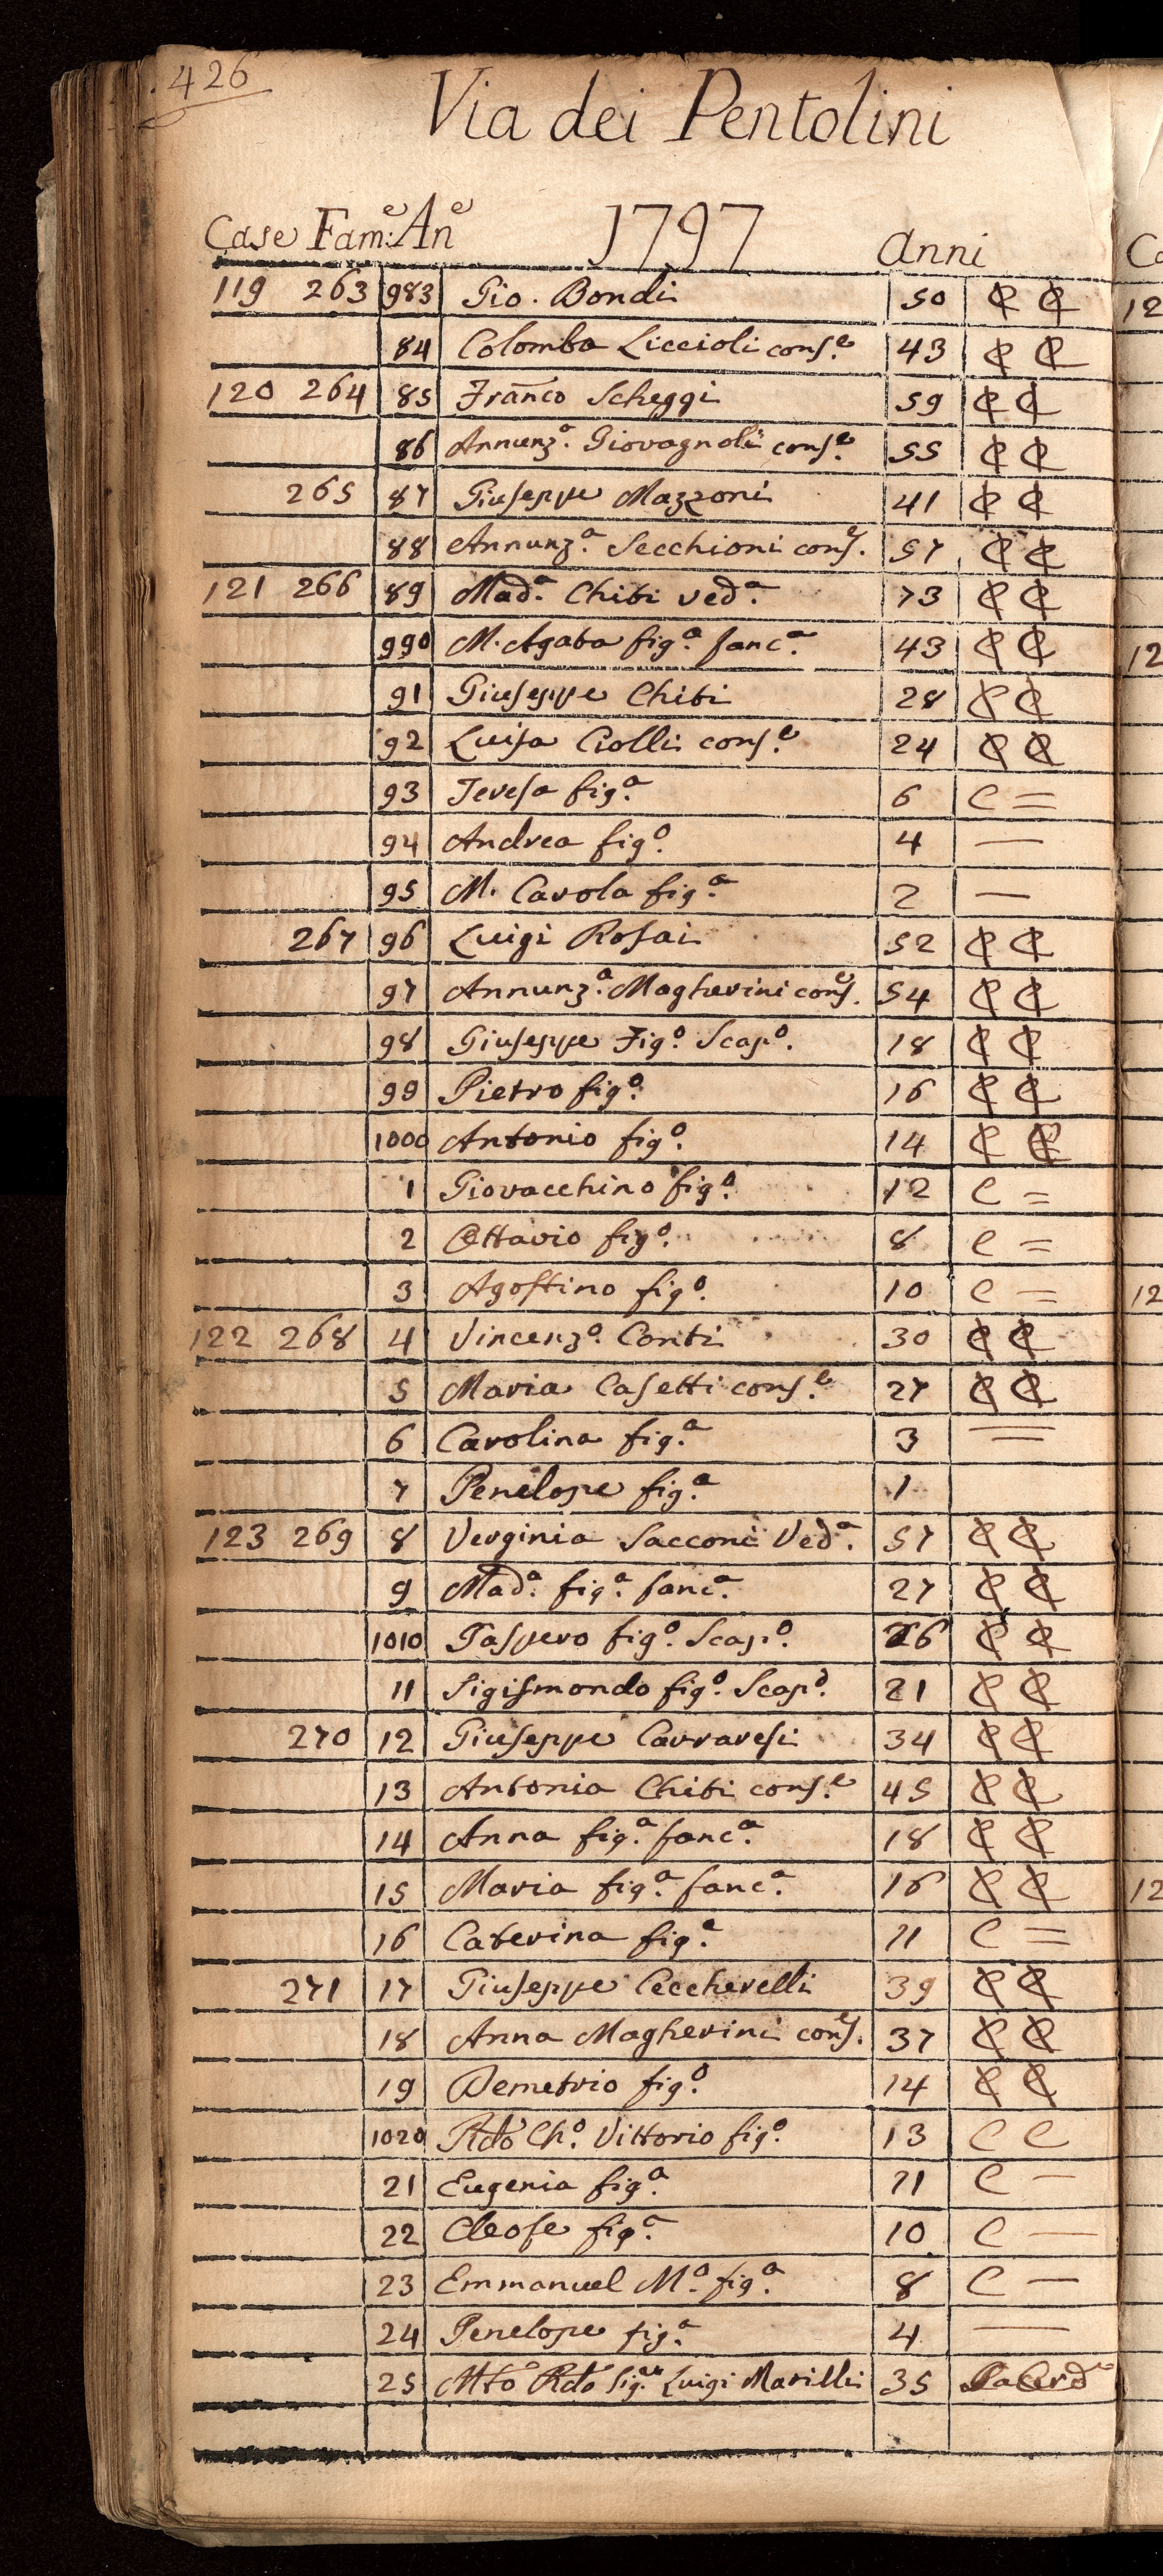 426
Via dei Pentolini
Case Fam:e An.e 1797 anni
119 263 983 Gio. Bondi 50 C C
84 Colomba Liccioli cons.e 43 C C
120 264 85 Franco Scheggi 59 C C
86 Annunz.a Giovagnoli cons.e 55 C C
265 87 Giuseppe Mazzoni 41 C C
88 Annunz.a Secchioni cons.e 57 C C
121 266 89 Mad.a Chiti ved.a 73 C C
990 M. Agata fig.a fanc.a 43 C C
91 Giuseppe Chiti 28 C C
92 Luisa Ciolli cons.e 24 C C
93 Teresa fig.a 6 C =
94 Andrea fig.o 4 —
95 M. Carola fig.a 2 —
267 96 Luigi Rosai 52 C C
97 Annunz.a Magherini cons.e 54 C C
98 Giuseppe Fig.o Scap.o 18 C C
99 Pietro fig.o 16 C C
1000 Antonio fig.o 14 C C
1 Giovacchino fig.o 12 C =
2 Ottavio fig.o 8 C =
3 Agostino fig.o 10 C =
122 268 4 Vincenz.o Conti 30 C C
5 Maria Casetti cons.e 27 C C
6 Carolina fig.a 3 =
7 Penelope fig.a 1
123 269 8 Verginia Sacconi Ved.a 57 C C
9 Mad.a fig.a fanc.a 27 C C
1010 Gaspero fig.o Scap.o 26 C C
11 Sigismondo fig.o Scap.o 21 C C
270 12 Giuseppe Carraresi 34 C C
13 Antonia Chiti cons.e 45 C C
14 Anna fig.a fanc.a 18 C C
15 Maria fig.a fanc.a 16 C C
16 Caterina fig.a 11 C =
271 17 Giuseppe Ceccherelli 39 C C
18 Anna Magherini cons.e 37 C C
19 Demetrio fig.o 14 C C
1020 Rdo Ch.o Vittorio fig.o 13 C C
21 Eugenia fig.a 11 C —
22 Cleofe fig.a 10 C —
23 Emmanuel M.a fig.a 8 C —
24 Penelope fig.a 4 —
25 Mto Rdo Sig.re Luigi Marilli 35 Sacerd.e